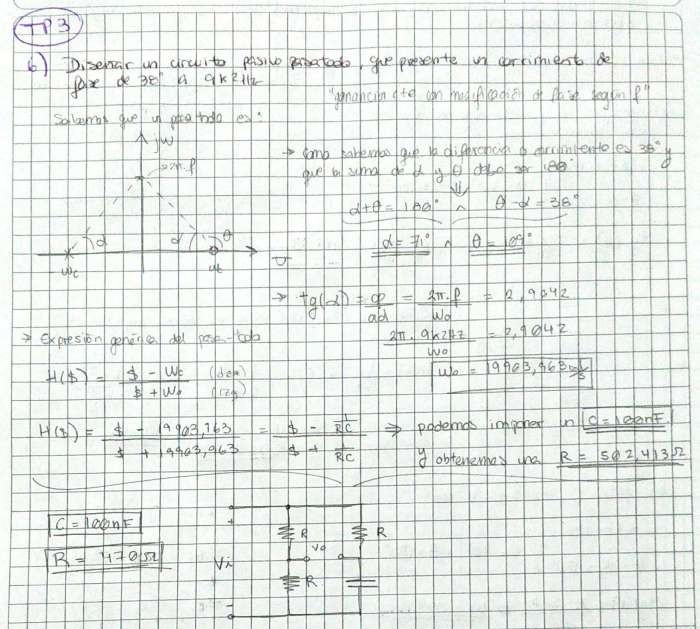 TP3
6) Diseñar un circuito pasivo pasatodo, que presente un corrimiento de
fase de 38° a 9k2Hz
"ganancia cte con modificación de fase según f"
Sabemos que un pasa todo es:
jw
2π.f
α α θ
-wc wc σ
→ Como sabemos que la diferencia o corrimiento es 38° y
que la suma de α y θ debe ser 180°
α+θ = 180° ^ θ-α = 38°
α = 71° ^ θ = 109°
→ tg(α) = op/ad = 2π.f/W0 = 2,9042
2π. 9k2Hz/W0 = 2,9042
W0 = 19903,963
→ Expresión genérica del pasa-todo
H($) = $ - W0 / $ + W0 (der) (izq)
H($) = $ - 19903,963 / $ + 19903,963 = $ - 1/RC / $ + 1/RC ⇒ podemos imponer un C = 100nF
y obtenemos una R = 502,413Ω
C = 100nF
R = 470Ω
+
Vi
-
R R
Vo
R